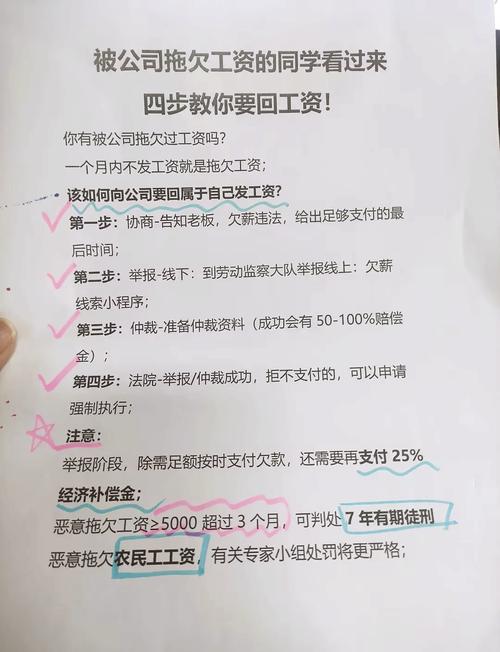 被公司拖欠工资的同学看过来
四步教你要回工资！
你有被公司拖欠过工资吗？
一个月内不发工资就是拖欠工资；
该如何向公司要回属于自己发工资？
第一步：协商-告知老板，欠薪违法，给出足够支付的最
后时间；
第二步：举报-线下：到劳动监察大队举报线上：欠薪
线索小程序；
第三步：仲裁-准备仲裁资料（成功会有 50-100%赔偿
金）；
第四步：法院-举报/仲裁成功，拒不支付的，可以申请
强制执行；
注意：
举报阶段，除需足额按时支付欠款，还需要再支付 25%
经济补偿金；
恶意拖欠工资≥5000 超过 3 个月，可判处 7 年有期徒刑
恶意拖欠农民工工资，有关专家小组处罚将更严格；